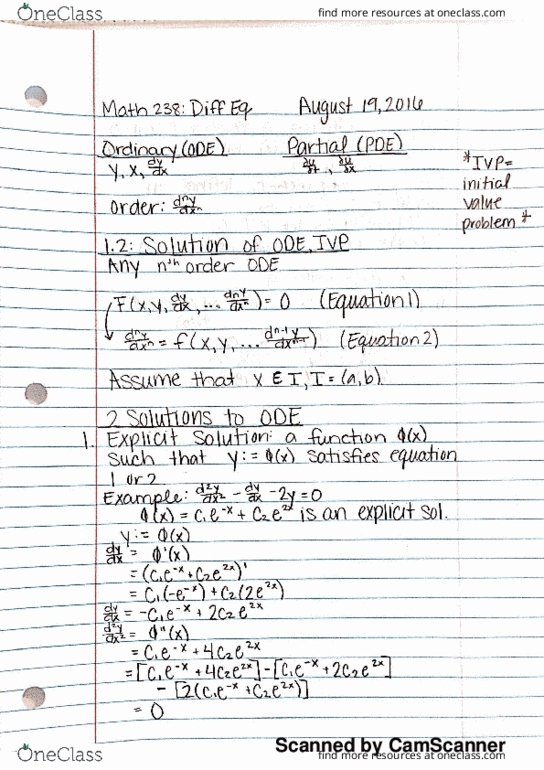 OneClass
find more resources at oneclass.com
Math 238: Diff Eq August 19, 2016
Ordinary (ODE) Partial (PDE)
y, x, dy/dx ∂u/∂t, ∂u/∂x
*IVP=
initial
value
problem*
order: dⁿy/dxⁿ
1.2: Solution of ODE, IVP
Any nᵗʰ order ODE
F(x, y, dy/dx, ... dⁿy/dxⁿ) = 0 (Equation 1)
dⁿy/dxⁿ = f(x, y, ... dⁿ⁻¹y/dxⁿ⁻¹) (Equation 2)
Assume that x ∈ I, I = (a,b)
2 Solutions to ODE
1. Explicit Solution: a function φ(x)
such that y := φ(x) satisfies equation
1 or 2
Example: d²y/dx² - dy/dx - 2y = 0
φ(x) = c₁e⁻ˣ + c₂e²ˣ is an explicit sol.
y := φ(x)
dy/dx = φ'(x)
= (c₁e⁻ˣ + c₂e²ˣ)'
= c₁(-e⁻ˣ) + c₂(2e²ˣ)
dy/dx = -c₁e⁻ˣ + 2c₂e²ˣ
d²y/dx² = φ"(x)
= c₁e⁻ˣ + 4c₂e²ˣ
= [c₁e⁻ˣ + 4c₂e²ˣ] - [c₁e⁻ˣ + 2c₂e²ˣ]
- [2(c₁e⁻ˣ + c₂e²ˣ)]
= 0
Scanned by CamScanner
OneClass
find more resources at oneclass.com